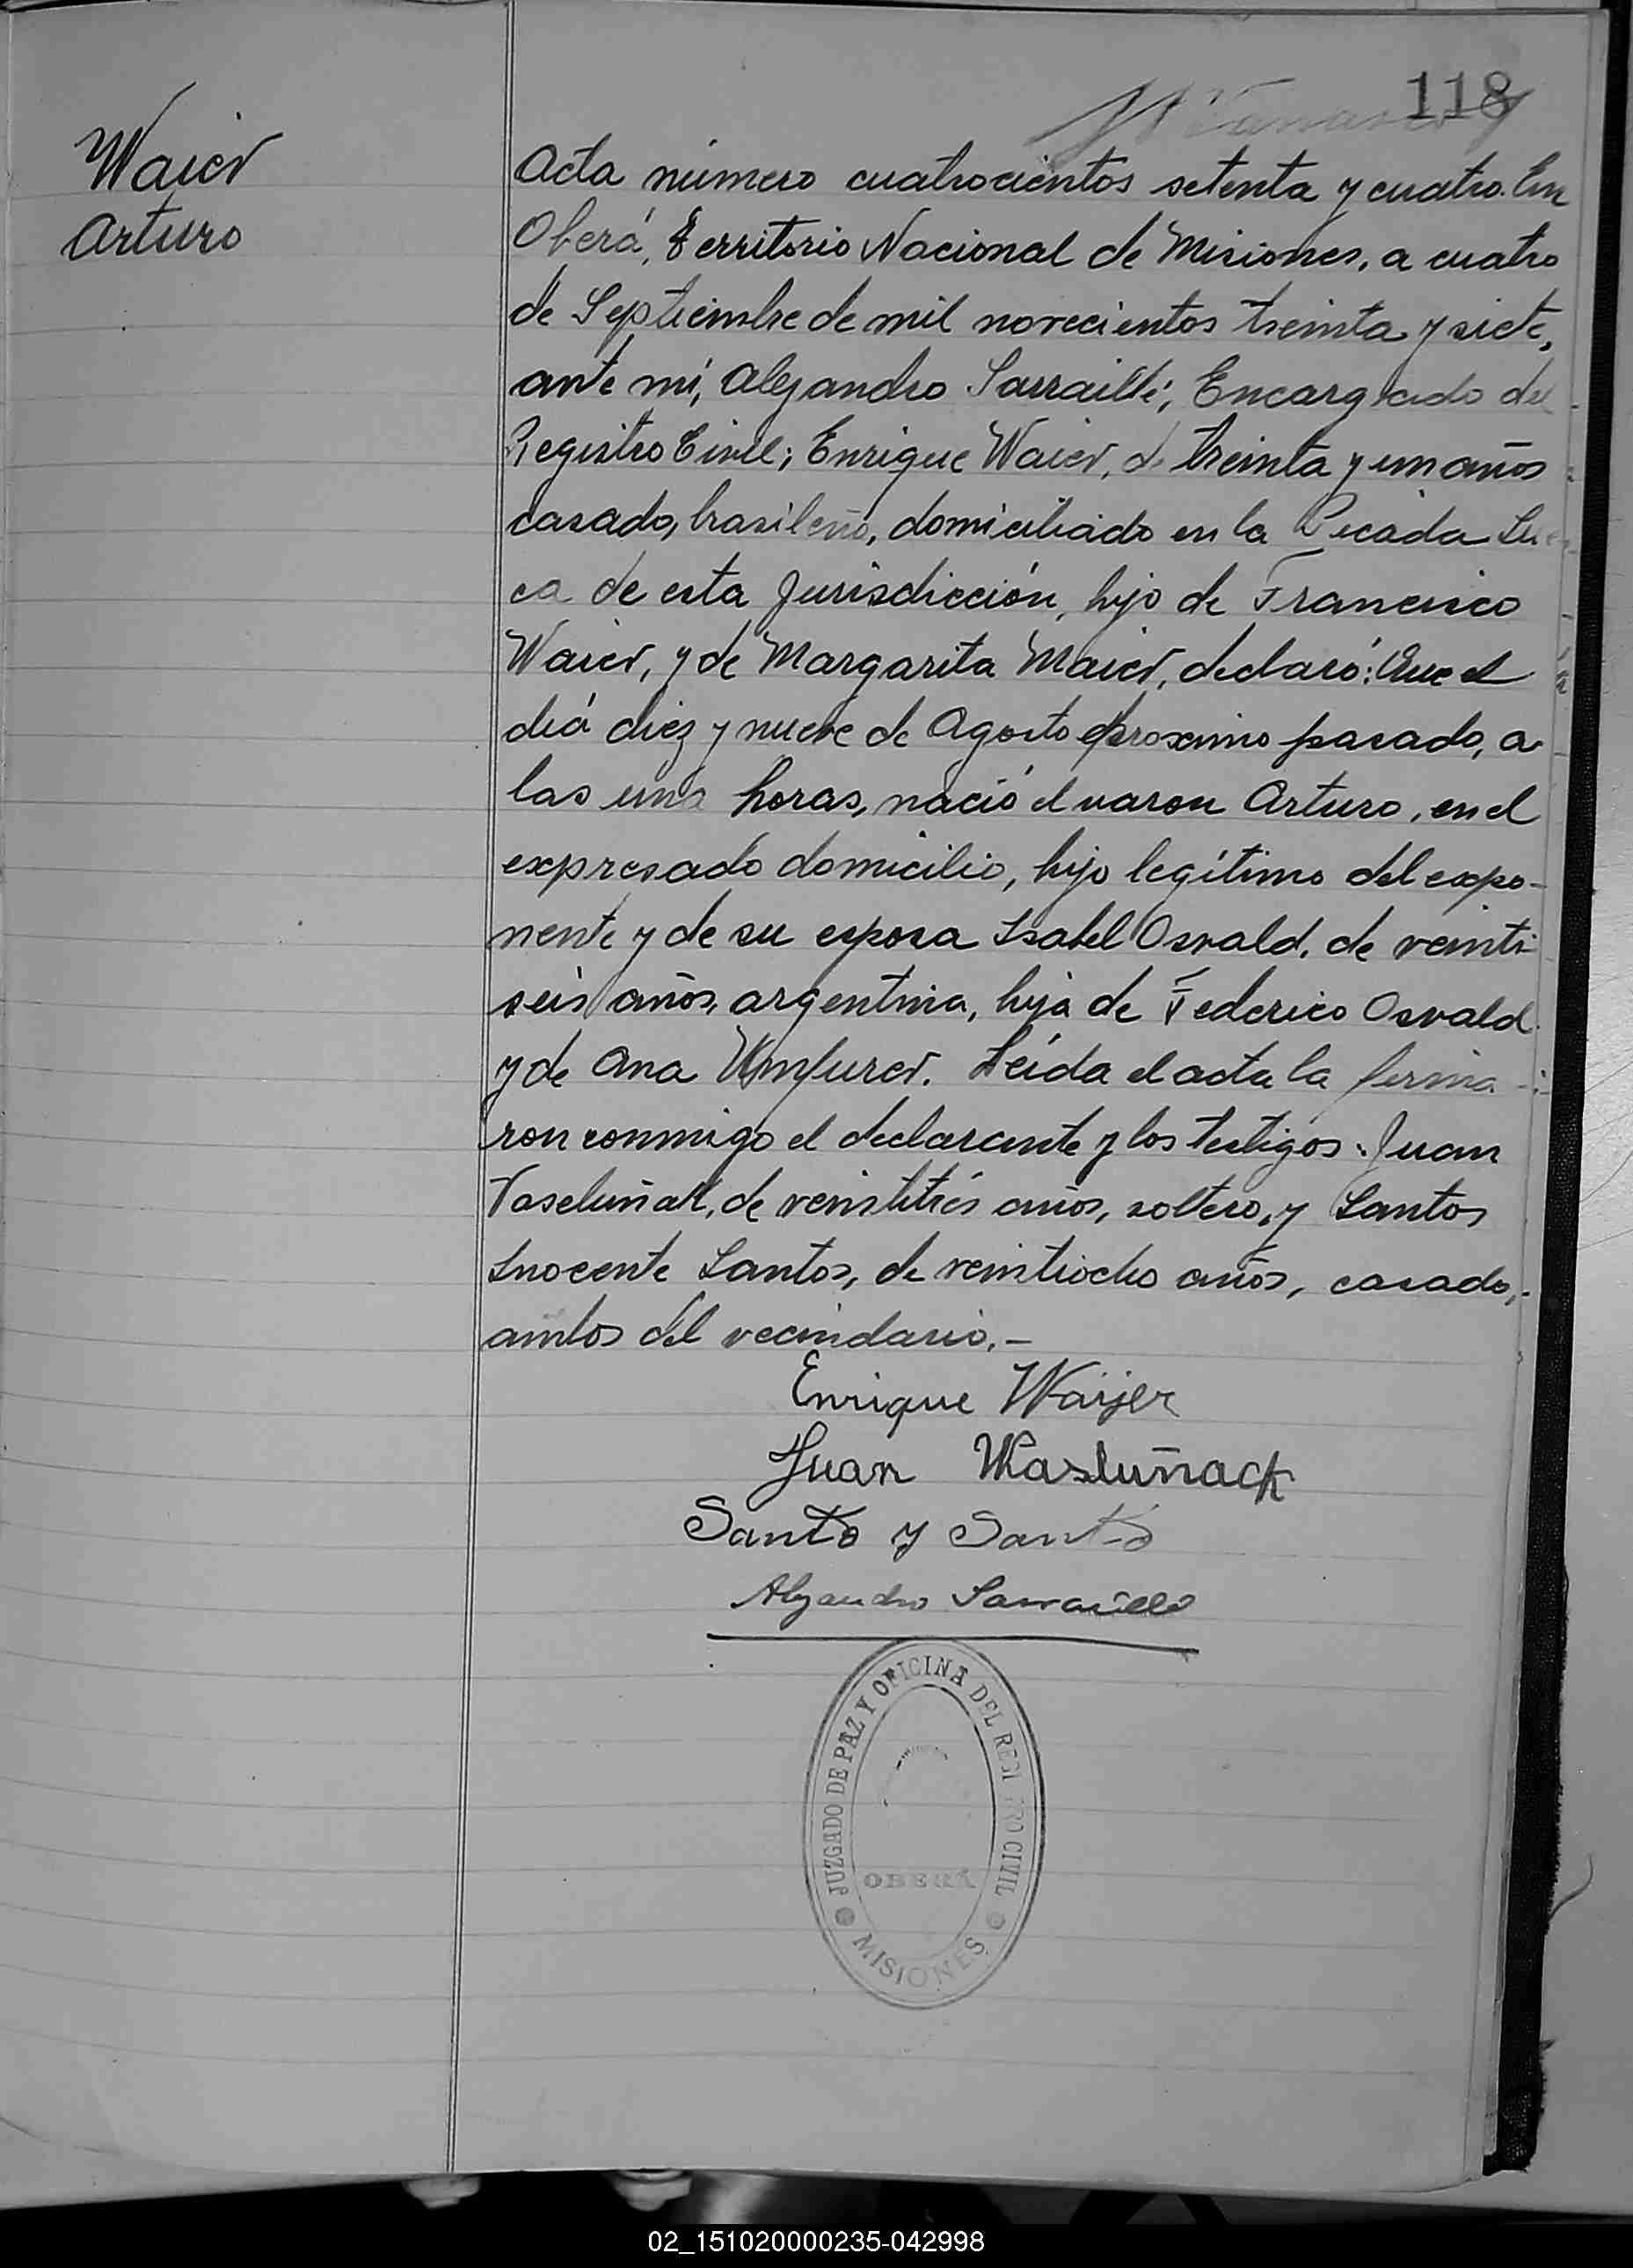 118
Waier
Arturo
Acta número cuatrocientos setenta y cuatro. En
Oberá, Territorio Nacional de Misiones, a cuatro
de Septiembre de mil novecientos treinta y siete,
ante mí, Alejandro Sarraillé, Encargado del
Registro Civil; Enrique Waier, de treinta y un años
casado, brasileño, domiciliado en la Picada Sue-
ca de esta Jurisdicción, hijo de Francisco
Waier, y de Margarita Maier, declaró: Que el
diá diez y nueve de Agosto proximo pasado, a
las una horas, nació el varon Arturo, en el
expresado domicilio, hijo legítimo del expo-
nente y de su esposa Isabel Osvald, de veinti-
seis años, argentina, hija de Federico Osvald
y de Ana Umfurer. Leída el acta la firma-
ron conmigo el declarante y los testigos: Juan
Vaseluñak, de veintitrés años, soltero, y Santos
Inocente Santos, de veintiocho años, casado,
ambos del vecindario.-
Enrique Waijer
Juan Wasluñack
Santo y Santo
Alejandro Sarraillé
JUZGADO DE PAZ Y OFICINA DEL REGISTRO CIVIL
OBERÁ
MISIONES
02_151020000235-042998